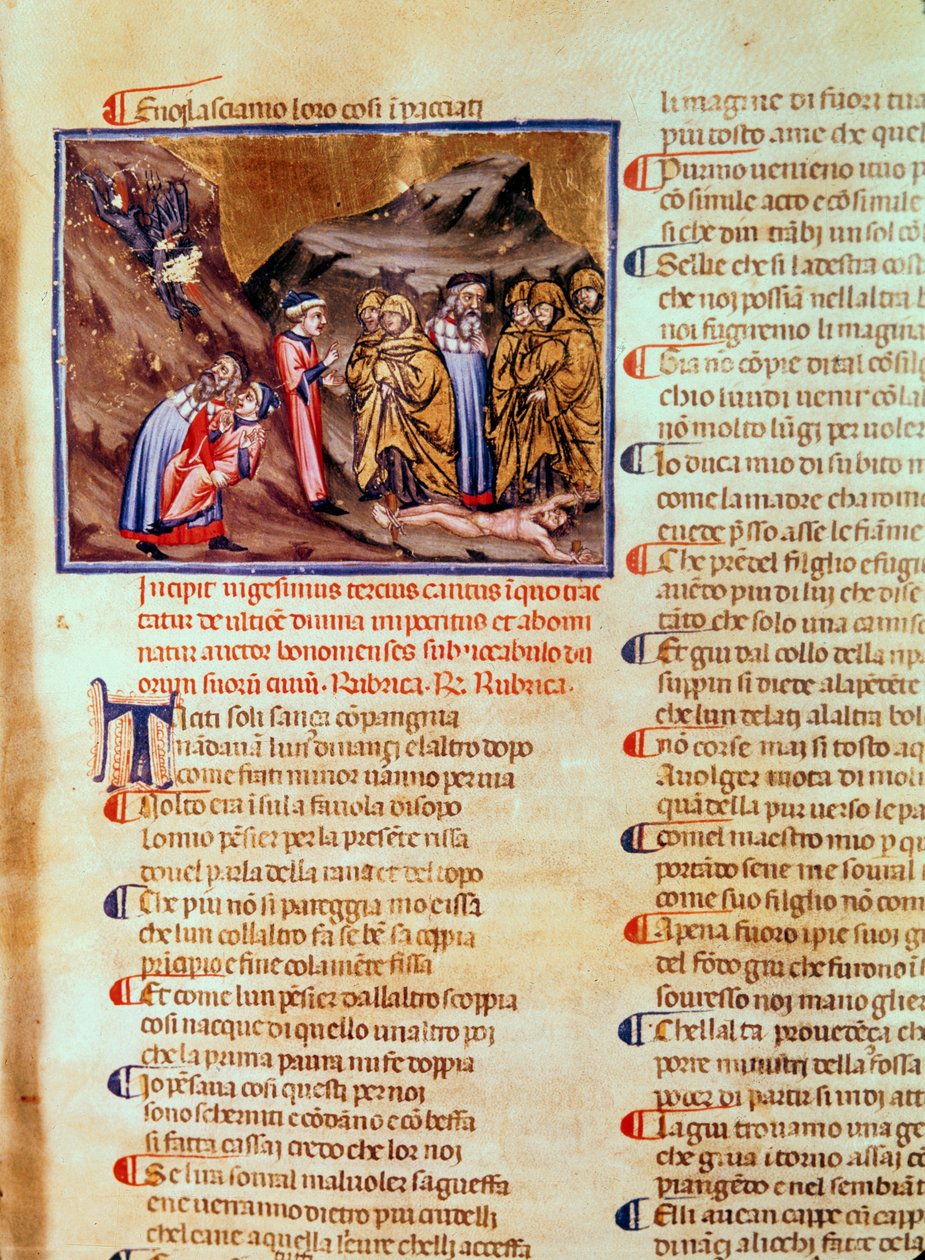 Enoj lasciamo loro cosi īpacciati
Incipit uigesimus tercius cantus ī quo trac
tatur de ultiōē diuina in ipocritas et abomi
natur auctor bononienses sub uocabulo
orum suorū ciuiū. Rubrica. R. Rubrica.
Taciti soli sanca cōpangnia
nādauā lun dinançi elaltro dopo
come frati minor uāno per uia
Uolto era ī su la fauola disopo
lo mio pēsier per la presēte rissa
douel parla della rana et del topo
Che piu nō si pareggia mo eissa
che lun collaltro fa se bē sa coppia
prīcipio e fine cola mēte fissa
Et come lun pēsier dallaltro scoppia
cosi nacque di quello un altro poi
che la prima paura mi fe doppia
Io pēsaua cosi questi per noi
sono scherniti e cō dāno e cō beffa
si fatta cassai credo che lor noi
Se lira soural maluoler sagueffa
ene uerranno dietro piu crudelj
chel cane a quella leure chelli acceffa
limagine di fuori tua
piu tosto a me che quel
Pur mo uenieno i tuo p
cō simile acto e cō simile
si che din trābj un sol cō
Selli e che si la destra cost
che noj possiā nellaltra b
noi fugiremo limagina
Gia nō cōpie di tal cōsilg
chio li uidi uenir cō lal
nō molto lūgj per uoler
Io duca mio di subito m
come la madre cha romo
e uede p̄sso asse le fiāme
Che prēdel filglio e fugi
auēdo piu di lui che di se
tāto che solo una camisc
Et giu dal collo della ripa
suppin si diede a la pētēte
che lun delati a laltra bol
nō corse mai si tosto aq
A uolger rota di moli
quādella piu uerso le pa
comel maestro mio p qu
portādo sene me soural s
come suo filglio nō com
A pena fuoro i pie suoi gi
del fōdo giu che furono ī s
souresso noj ma no glier
Chellalta prouedēça ch
porre ministri della fossa
poder di partirsi indi att
La giu trouamo una ge
che giua ītorno assaj cō
piangēdo e nel sembiāt
Elli auean cappe cū capp
dinançi a liocchi facte dela